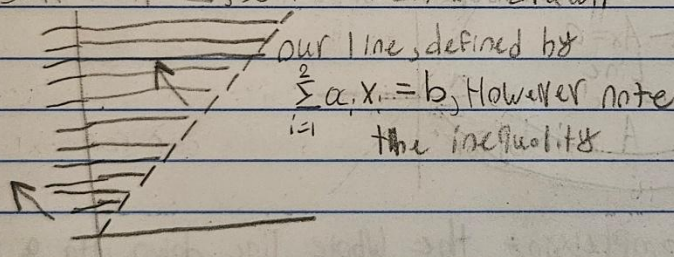 our line, defined by
2
∑ aᵢxᵢ = b, However note
i=1
the inequality